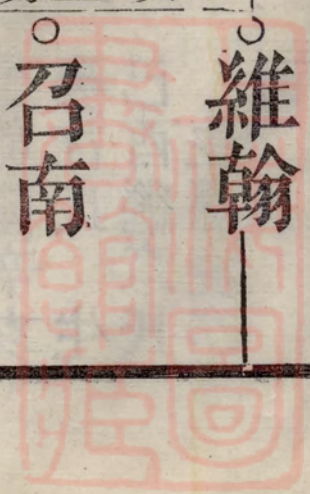 ○維翰
○召南